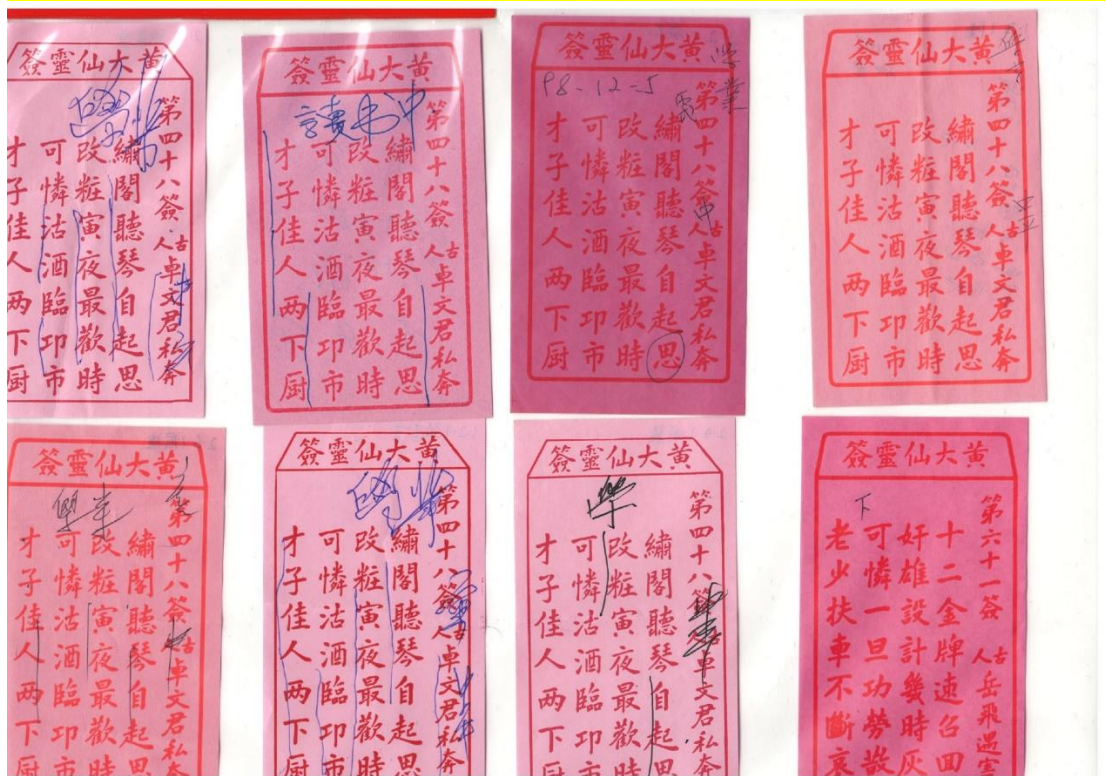 黄大仙靈簽
第四十八簽 古人 卓文君私奔
繡閣聽琴自起思
改粧寅夜最歡時
可憐沽酒臨邛市
才子佳人两下厨
黄大仙靈簽
讀书中
第四十八簽 古人 卓文君私奔
繡閣聽琴自起思
改粧寅夜最歡時
可憐沽酒臨邛市
才子佳人两下厨
黄大仙靈簽
98-12-5
第四十八簽 古人 卓文君私奔
中
繡閣聽琴自起思
改粧寅夜最歡時
可憐沽酒臨邛市
才子佳人两下厨
黄大仙靈簽
第四十八簽 古人 卓文君私奔
繡閣聽琴自起思
改粧寅夜最歡時
可憐沽酒臨邛市
才子佳人两下厨
黄大仙靈簽
第四十八簽 古人 卓文君私奔
繡閣聽琴自起思
改粧寅夜最歡時
可憐沽酒臨邛市
才子佳人两下厨
黄大仙靈簽
第四十八簽 古人 卓文君私奔
繡閣聽琴自起思
改粧寅夜最歡時
可憐沽酒臨邛市
才子佳人两下厨
黄大仙靈簽
第四十八簽 古人 卓文君私奔
繡閣聽琴自起思
改粧寅夜最歡時
可憐沽酒臨邛市
才子佳人两下厨
黄大仙靈簽
下
第六十一簽 古人 岳飛遇害
十二金牌速召回
奸雄設計幾時灰
可憐一旦功勞散
老少扶車不斷哀